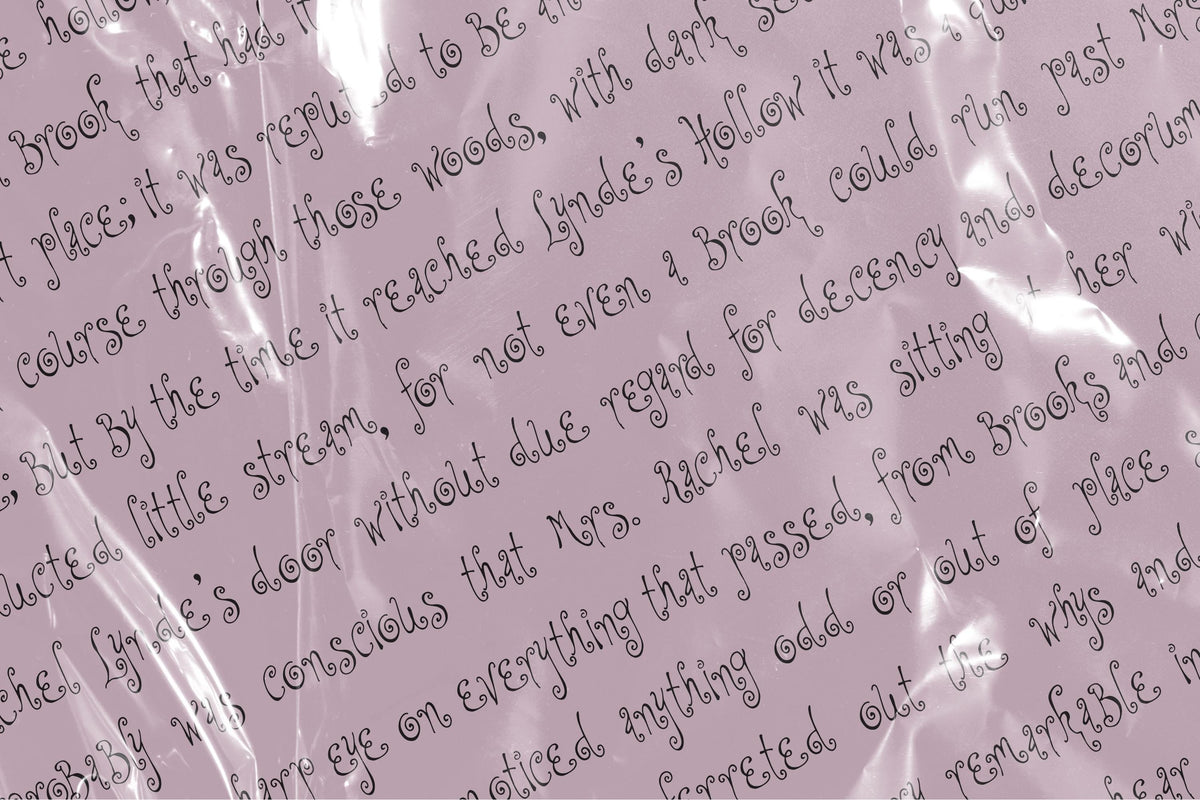 e hollow,
Brook that had it
t place; it was reputed to be an
course through those woods, with dark se
; but by the time it reached Lynde's Hollow it was a qui
ducted little stream, for not even a Brook could run past Mrs
chel Lynde's door without due regard for decency and decorum
probaby was conscious that Mrs. Rachel was sitting at her wi
harp eye on everything that passed, from brooks and
noticed anything odd or out of place s
ferreted out the whys and
y remarkable in
hear